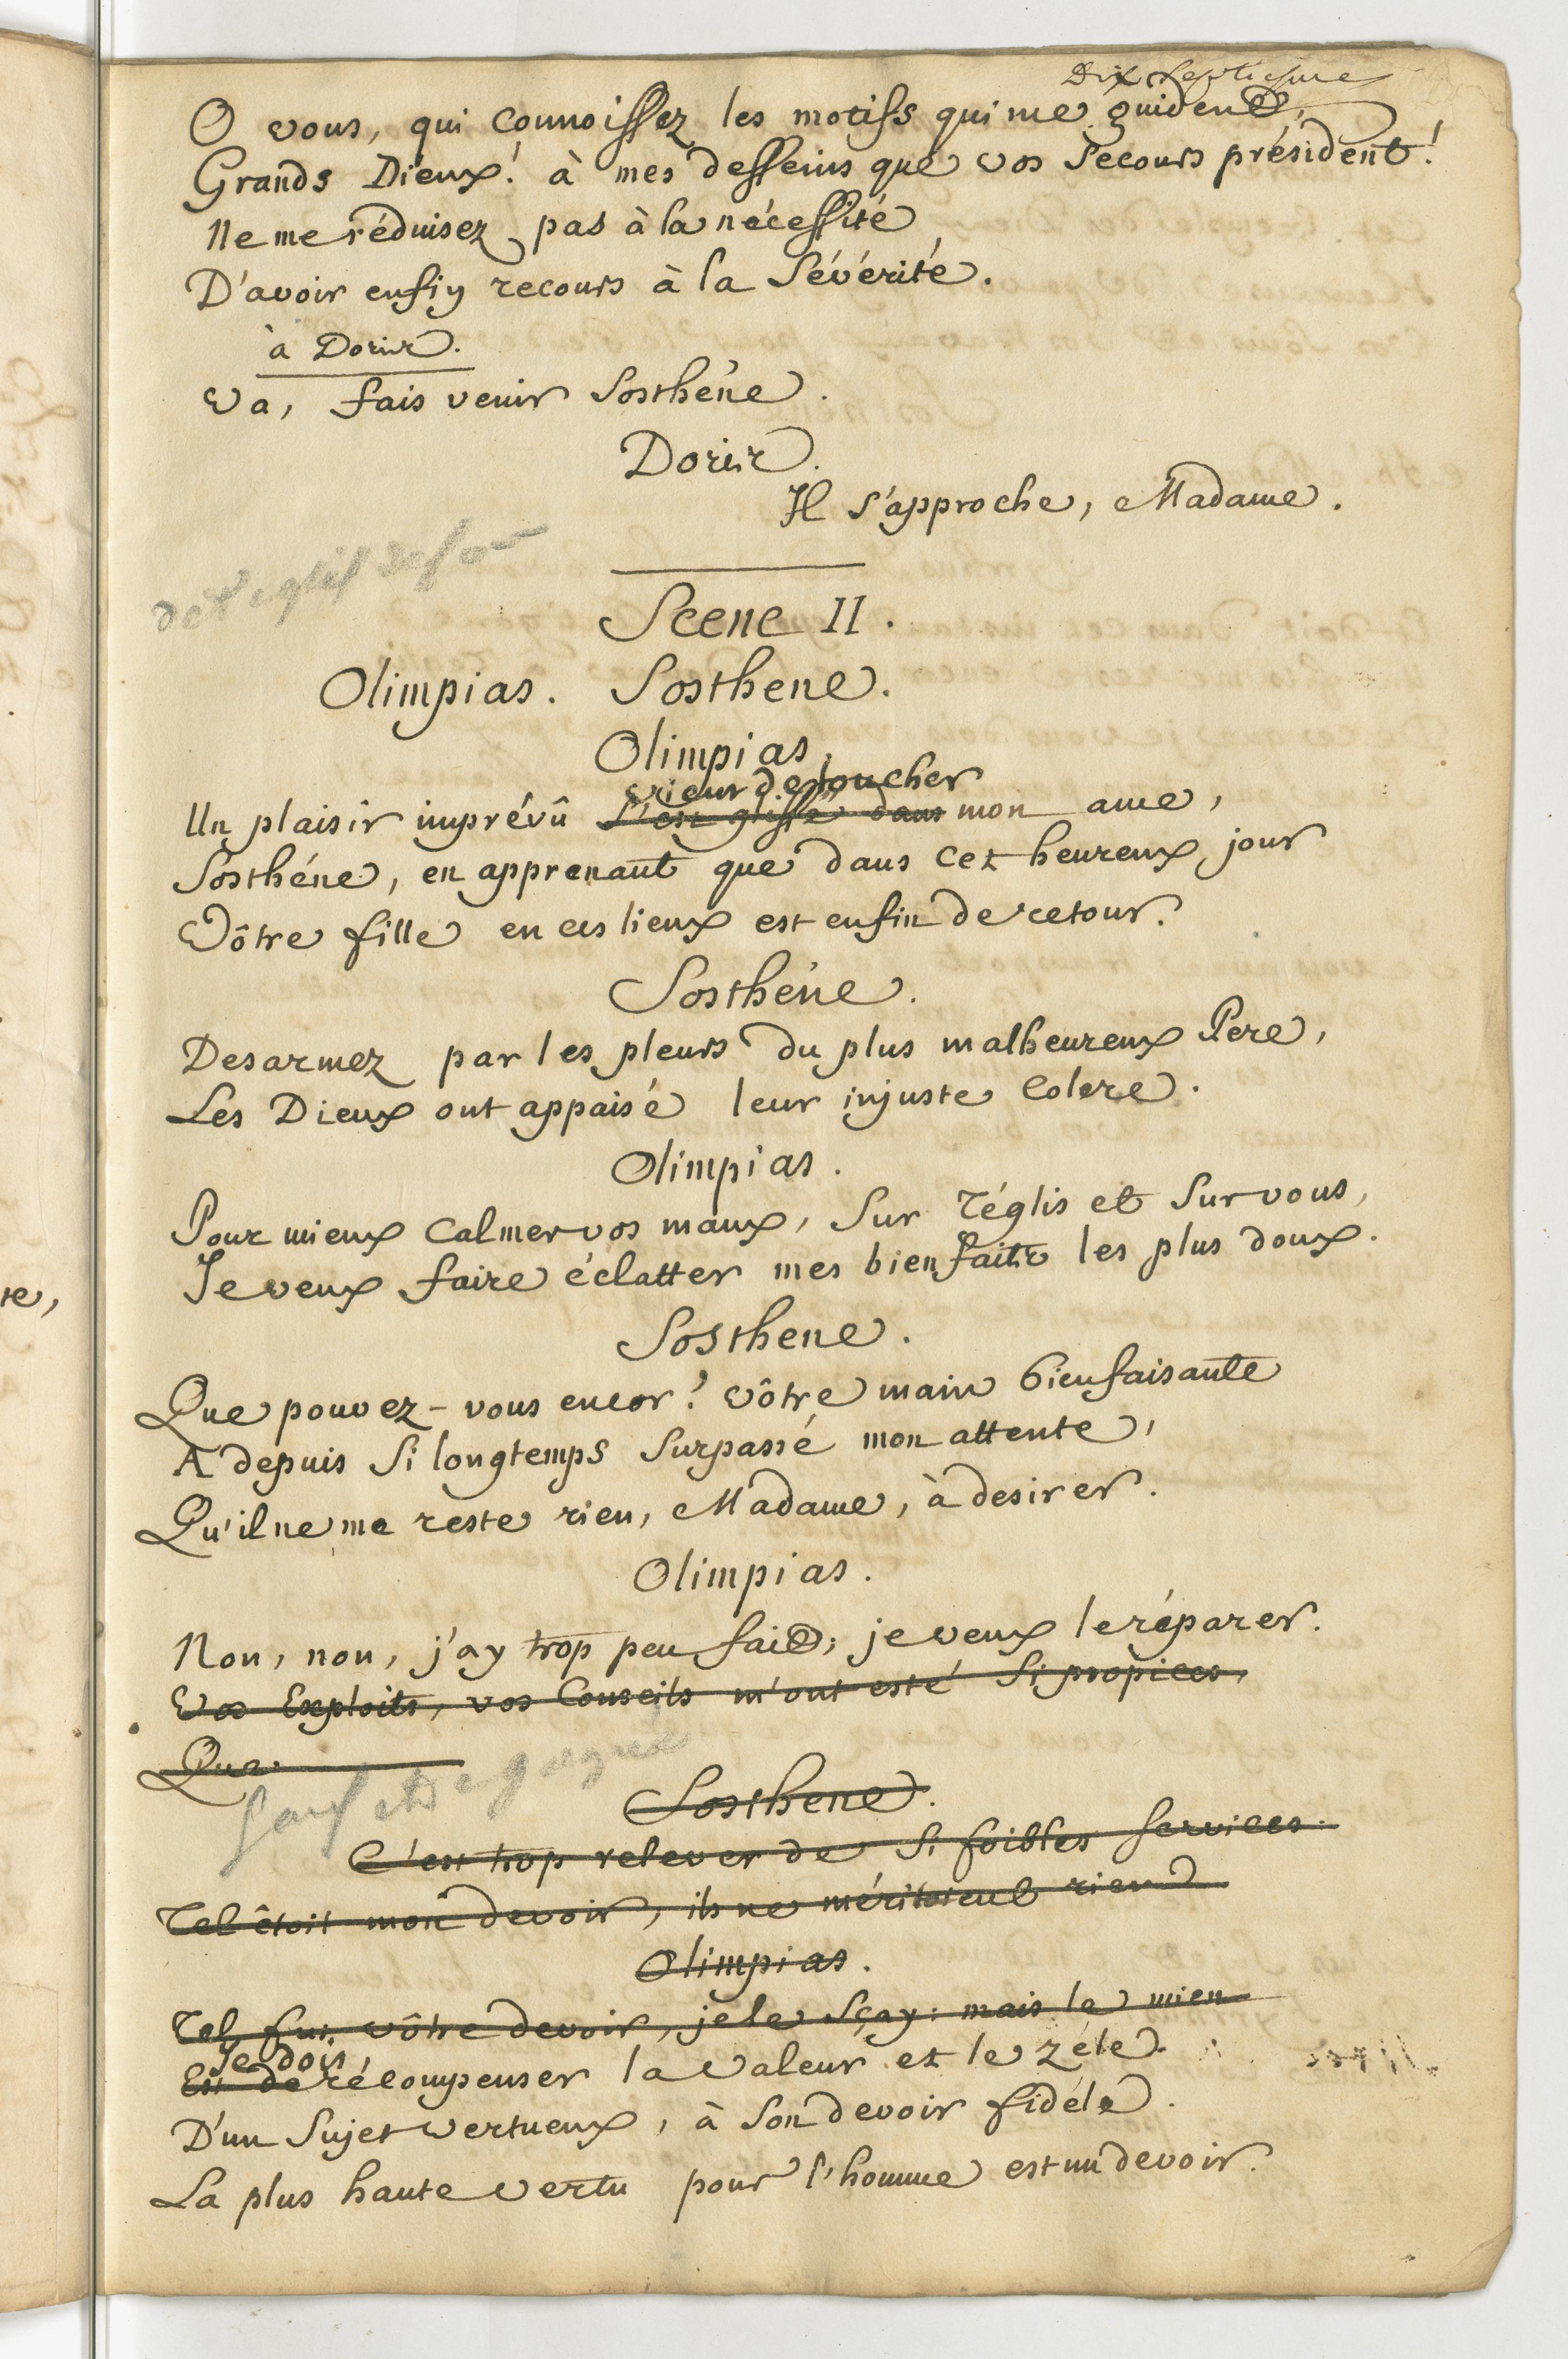 Dix Septiesme
O vous, qui connoissez les motifs qui me guident,
Grands Dieux! à mes desseins que vos secours président!
Ne me réduisez pas à la nécessité
D'avoir enfin recours à la sévérité.
à Dorir.
Va, fais venir Sosthéne.
Dorir.
Il s'approche, Madame.
Scene II.
Olimpias. Sosthene.
Olimpias.
vient de toucher
Un plaisir imprévû s'est glissé dans mon ame,
Sosthéne, en apprenant que dans cet heureux jour
Vôtre fille en ces lieux est enfin de retour.
Sosthéne.
Desarmez par les pleurs du plus malheureux Pere,
Les Dieux ont appaisé leur injuste Colere.
Olimpias.
Pour mieux calmer vos maux, sur Téglis et sur vous,
Je veux faire éclatter mes bienfaits les plus doux.
Sosthene.
Que pouvez-vous encor? vôtre main bienfaisante
A depuis si longtemps surpassé mon attente,
Qu'il ne me reste rien, Madame, à desirer.
Olimpias.
Non, non, j'ay trop peu fait; je veux le réparer.
Vos Exploits, vos Conseils m'ont esté si propices,
Que.
Sosthene.
C'est trop relever de si foibles services.
Tel étoit mon devoir, ils ne méritoient rien
Olimpias.
Tel fut vôtre devoir, je le sçay: mais le mien
Je dois
Est de récompenser la valeur et le zéle
D'un sujet vertueux, à son devoir fidéle.
La plus haute vertu pour l'homme est un devoir.